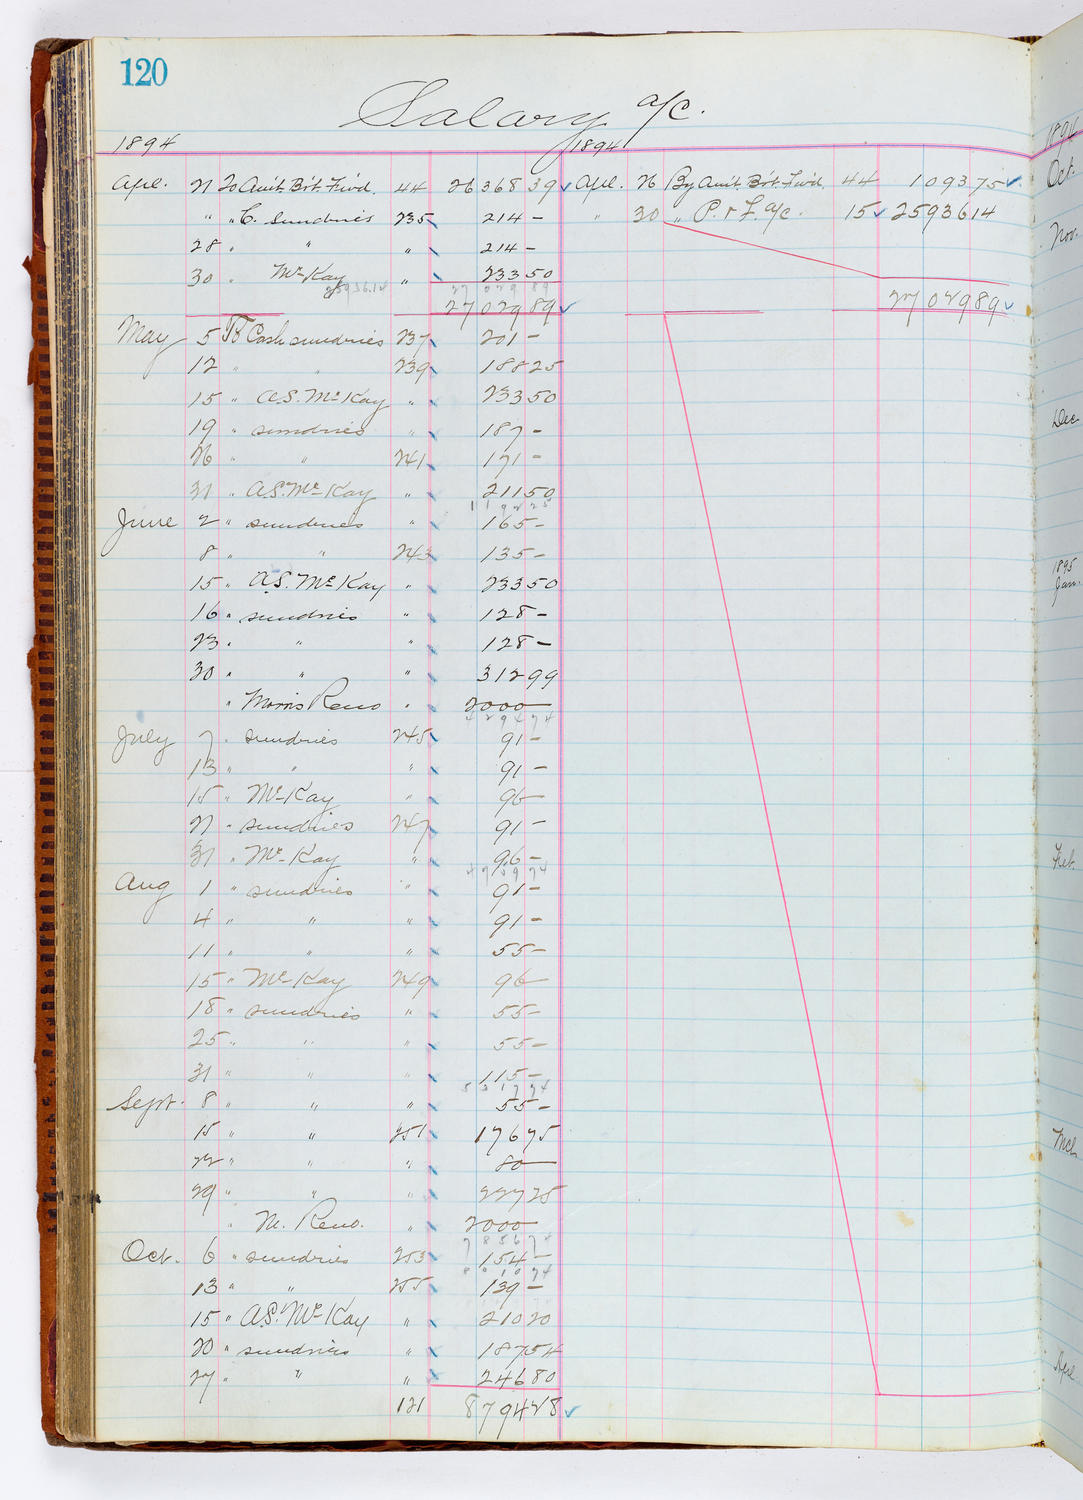 120
Salary a/c.
1894 1894
Apl. 21 To Amt. Bt. Fwd. 44 26 368 39 Apl. 26 By Amt. Bt. Fwd. 44 1093 75
" " C. sundries 235 214 - " 30 " P. & L. a/c. 15 25936 14
28 " " 214 -
30 " McKay " 233 50
25936.14 27 029 89
27 029 89 27029 89
May 5 To Cash sundries 237 201 -
12 " " 239 188 25
15 " A.S. McKay " 233 50
19 " sundries " 187 -
26 " " 241 171 -
31 " A.S. McKay " 211 50
1192 25
June 2 " sundries " 165 -
8 " " 243 135 -
15 " A.S. McKay " 233 50
16 " sundries " 128 -
23 " " " 128 -
30 " " " 312 99
" Morris Reno " 2000 -
4294 74
July 7 " sundries 245 91 -
13 " " " 91 -
15 " McKay " 96 -
21 " sundries 247 91 -
31 " McKay " 96 -
4759 74
Aug 1 " sundries " 91 -
4 " " " 91 -
11 " " " 55 -
15 " McKay 249 96 -
18 " sundries " 55 -
25 " " " 55 -
31 " " " 115 -
5317 74
Sept. 8 " " " 55 -
15 " " 251 176 75
22 " " " 80 -
29 " " " 227 25
" M. Reno. " 2000 -
7856 74
Oct. 6 " sundries 253 154 -
8010 74
13 " " 255 139 -
15 " A.S. McKay " 210 20
20 " sundries " 187 54
27 " " " 246 80
121 8794 28
1894
Oct.
Nov.
Dec
1895
Jan.
Feb.
Mch
Apl